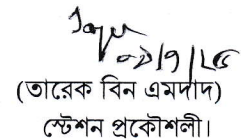 (তারেক বিন এমদাদ)
স্টেশন প্রকৌশলী।